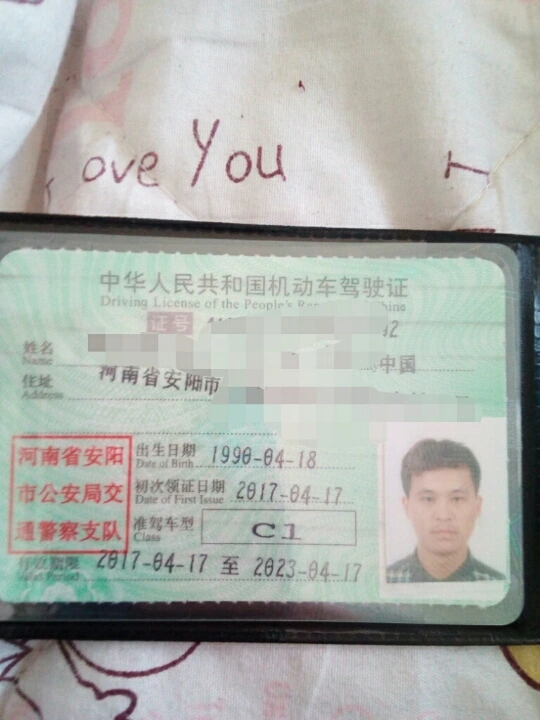 ove You
I
中华人民共和国机动车驾驶证
Driving License of the People's
证号
92
姓名
Name
中国
住址 河南省安阳市
Address
河南省安阳
市公安局交
通警察支队
出生日期 1990-04-18
Date of Birth
初次领证日期 2017-04-17
Date of First Issue
准驾车型 C1
Class
有效期限 2017-04-17 至 2023-04-17
Valid Period